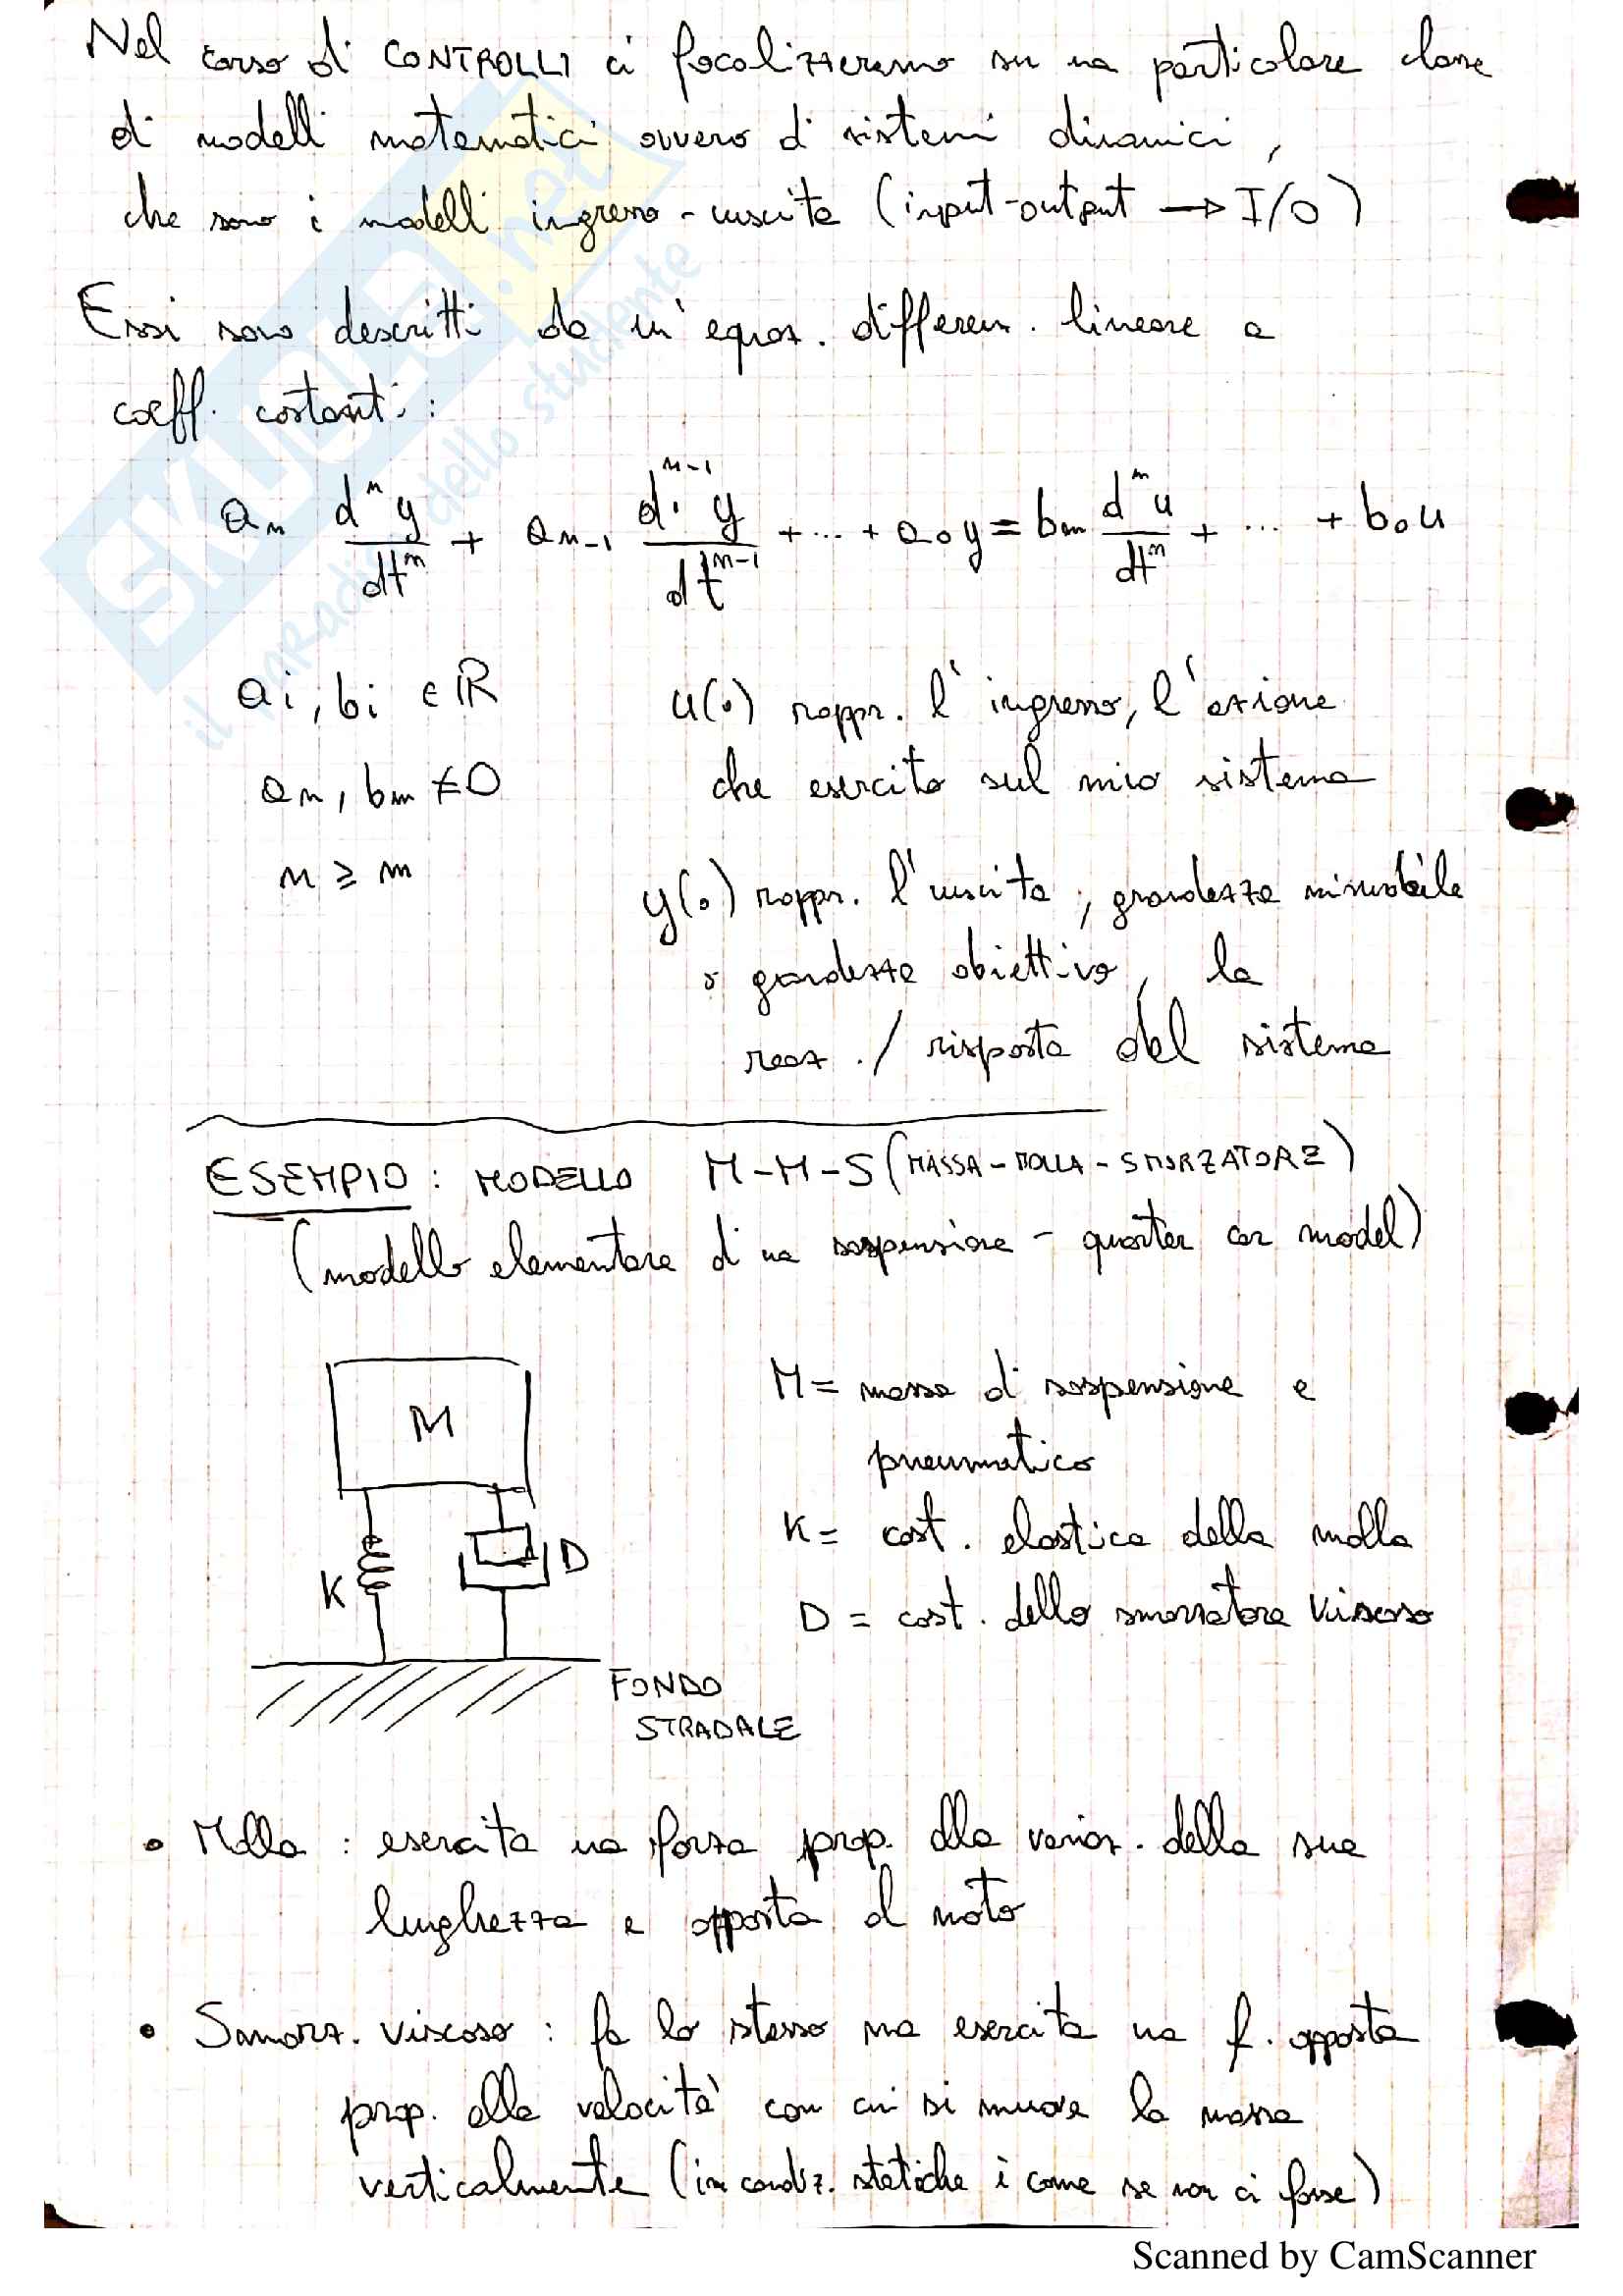 Nel corso di CONTROLLI ci focalizzeremo su una particolare classe
di modelli matematici ovvero di sistemi dinamici,
che sono i modelli ingresso-uscita (input-output → I/O)
Essi sono descritti da un'equaz. differenz. lineare a
coeff. costanti:
an dⁿy/dtⁿ + an-1 dⁿ⁻¹y/dtⁿ⁻¹ + ... + a0y = bm dᵐu/dtᵐ + ... + b0u
ai, bi ∈ ℝ
u(·) rappr. l'ingresso, l'azione
che esercito sul mio sistema
an, bm ≠ 0
n ≥ m
y(·) rappr. l'uscita, grandezza misurabile
o grandezza obiettivo, la
reaz. / risposta del sistema
ESEMPIO: MODELLO M-M-S (MASSA-MOLLA-SMORZATORE)
(modello elementare di una sospensione - quarter car model)
M
K
D
FONDO
STRADALE
M = massa di sospensione e
pneumatico
K = cost. elastica della molla
D = cost. dello smorzatore viscoso
• Molla: esercita una forza prop. alla variaz. della sua
lunghezza e opposta al moto
• Smorz. viscoso: fa lo stesso ma esercita una f. opposta
prop. alla velocità con cui si muove la massa
verticalmente (in condiz. statiche è come se non ci fosse)
SKUOLA.net
il paradiso dello studente
Scanned by CamScanner